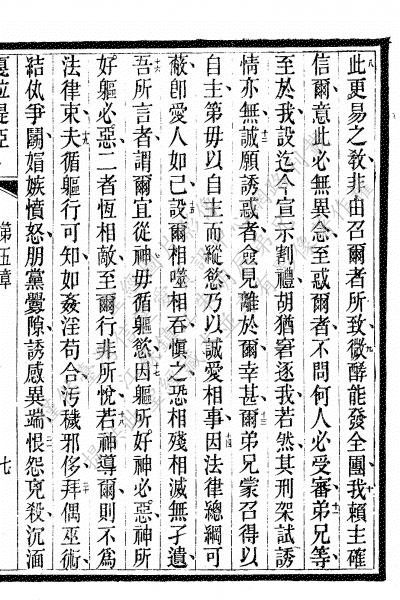 此更易之教非由召爾者所致微酵能發全團我賴主確
信爾意此必無異念至或爾者不問何人必受審弟兄等
至於我設迄今宣示割禮胡猶窘逐我若然其刑架試誘
情亦無誠願誘惑者僉見離於爾幸甚爾弟兄蒙召得以
自主第毋以自主而縱慾乃以誠愛相事因法律總綱可
蔽卽愛人如己設爾相噬相吞愼之恐相殘相滅無孑遺
吾所言者謂爾宜從神毋循軀慾因軀所好神必惡神所
好軀必惡二者恆相敵至爾行非所悅若神導爾則不爲
法律束夫循軀行可知如姦淫苟合汚穢邪侈拜偶巫術
結仇爭鬭媢嫉憤怒朋黨釁隙誘感異端恨怨兇殺沉湎
戛拉提亞 第五章 七